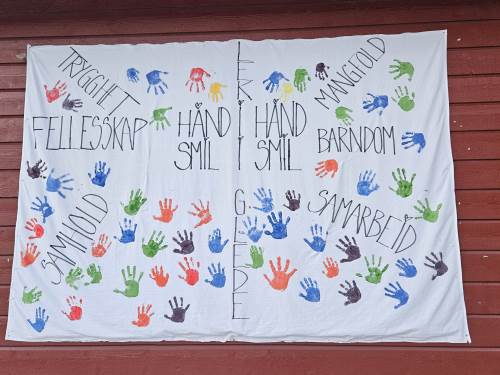 TRYGGHET
FELLESSKAP
SAMHOLD
HÅND
SMIL
LEK I GLEDE
HÅND
SMIL
MANGFOLD
BARNDOM
SAMARBEID